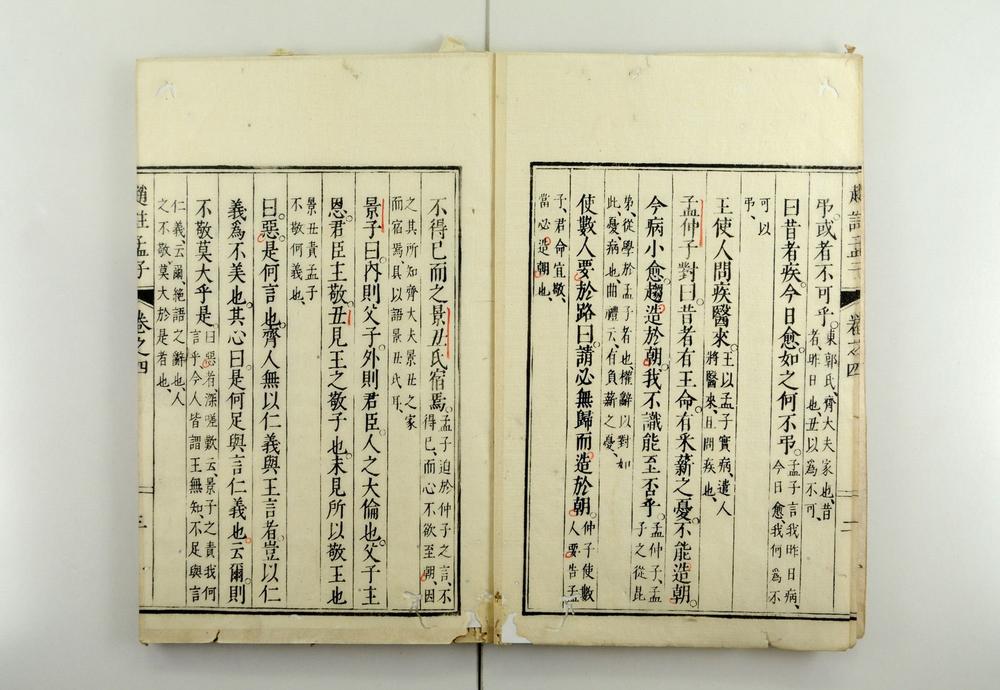 弔。或者不可乎。東郭氏、齊大夫家也、昔
者、昨日也、丑以為不可、
曰昔者疾。今日愈。如之何不弔。孟子言我昨日病、
今日愈、我何為不
可以
弔、
王使人問疾醫來。王以孟子實病、遣人
將醫來、且問疾也、
孟仲子對曰。昔者有王命。有采薪之憂。不能造朝。
今病小愈。趨造於朝。我不識能至否乎。孟仲子、孟
子之從昆
弟、從學於孟子者也、權辭以對、如
此、憂、病也、曲禮云、有負薪之憂、
使數人要於路曰。請必無歸而造於朝。仲子使數
人要告孟
子、君命宜敬、
當必造朝也、
不得已而之景丑氏宿焉。孟子迫於仲子之言、不
得已、而心不欲至朝、因
之其所知齊大夫景丑之家
而宿焉、具以語景丑氏耳、
景子曰。內則父子。外則君臣。人之大倫也。父子主
恩。君臣主敬。丑見王之敬子也。未見所以敬王也
景丑責孟子
不敬何義也、
曰惡。是何言也。齊人無以仁義與王言者。豈以仁
義為不美也。其心曰。是何足與言仁義也。云爾。則
不敬莫大乎是。曰惡者、深嗟歎云、景子之責我何
言乎、今人皆謂王無知、不足與言
仁義、云爾、絕語之辭也、人
之不敬、莫大於是者也、
趙註孟子
卷之四
三